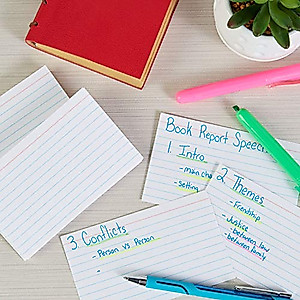 Book Report Speech
1. Intro
- man cha
- setting
2. Themes
- Friendship
- Justice
- between law
- between family
3. Conflicts
- Person vs Person
-